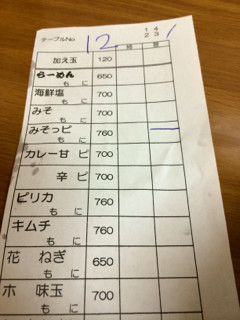 テーブルNo 12 1 4
2 3
加え玉 120
らーめん 650
もに
海鮮塩 700
もに
みそ 700
もに
みそっピ 760
もに
カレー甘ピ 700
辛ピ 700
ピリカ 760
もに
キムチ 760
もに
花 ねぎ 650
も に
ホ 味玉 700
も に